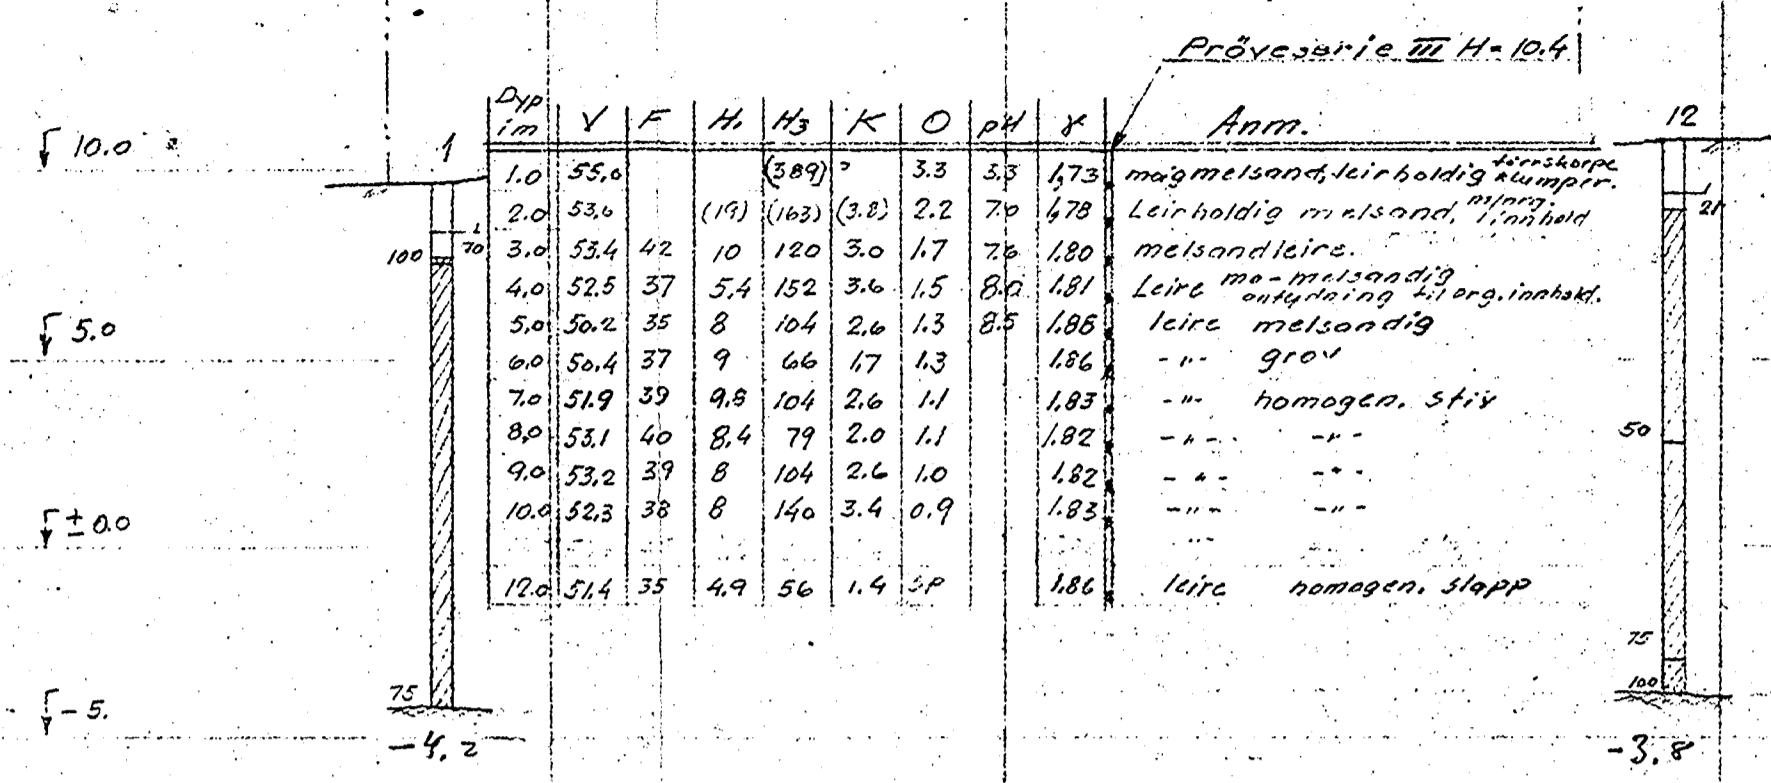 Pröveserie III H=10.4
10.0
1
12
Dyp im V F H₁ H₃ K O pH γ Anm.
1.0 55.0 (389) 3.3 3.3 1.73 mojmelsand, leirholdig tørrskorpe klumper.
2.0 53.6 (19) (163) (3.8) 2.2 7.0 1.78 Leirholdig melsand, m/org. innhold
21
100 70 3.0 53.4 42 10 120 3.0 1.7 7.6 1.80 melsandleire.
4.0 52.5 37 5.4 152 3.6 1.5 8.0 1.81 Leire mo-melsandig antydning til org. innhold.
5.0
5.0 50.2 35 8 104 2.6 1.3 8.5 1.86 leire melsandig
6.0 50.4 37 9 66 1.7 1.3 1.86 -"- grov
7.0 51.9 39 9.8 104 2.6 1.1 1.83 -"- homogen. stiv
8.0 53.1 40 8.4 79 2.0 1.1 1.82 -"- -"-
50
9.0 53.2 39 8 104 2.6 1.0 1.82 -"- -"-
10.0 52.3 38 8 140 3.4 0.9 1.83 -"- -"-
± 0.0
12.0 51.4 35 4.9 56 1.4 sp 1.86 leire homogen. slapp
75
100
75
-5.
-4.2
-3.8